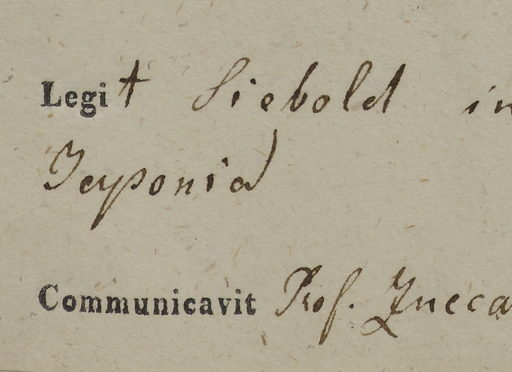 Legit Siebold in
Japonia
Communicavit Prof. Zucca